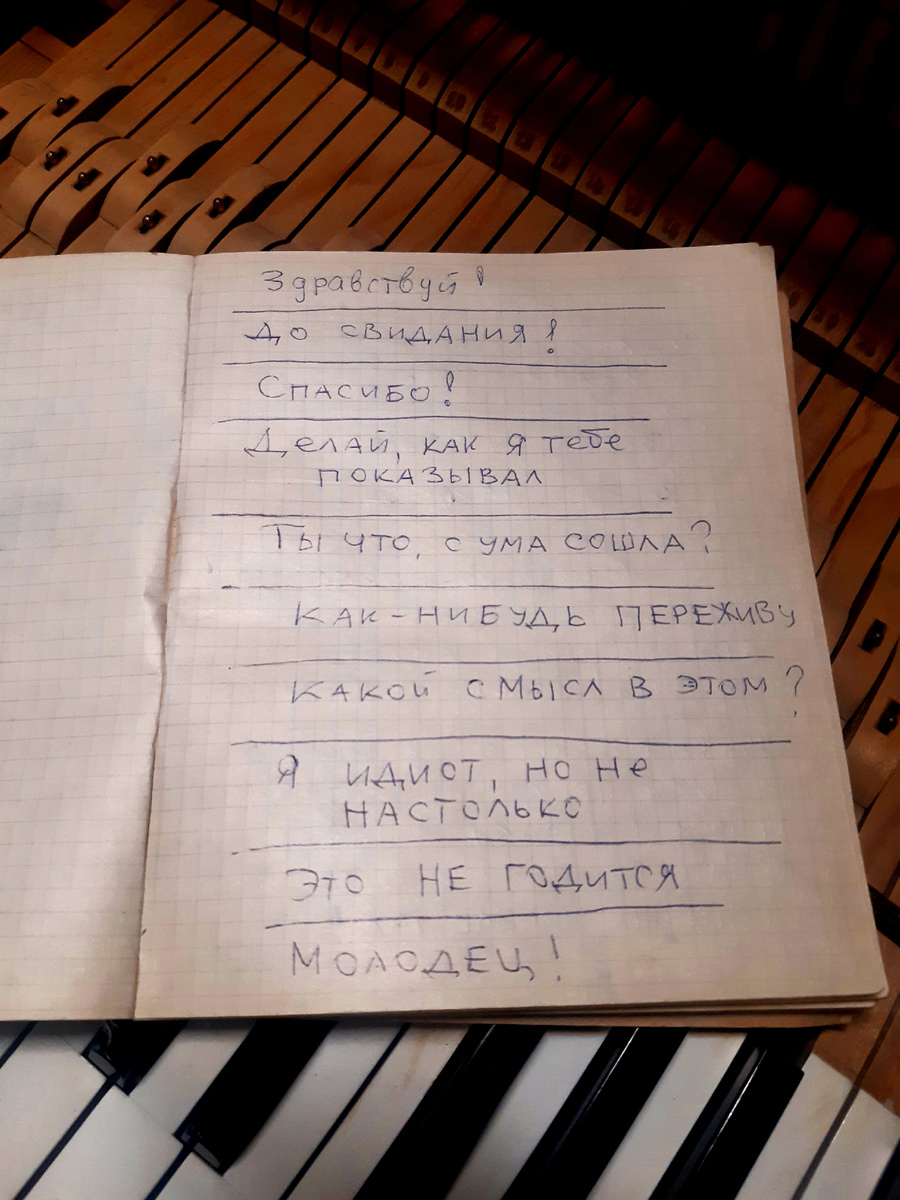 Здравствуй!
До свидания!
Спасибо!
Делай, как я тебе
показывал
Ты что, с ума сошла?
Как-нибудь переживу
Какой смысл в этом?
Я идиот, но не
настолько
Это не годится
Молодец!